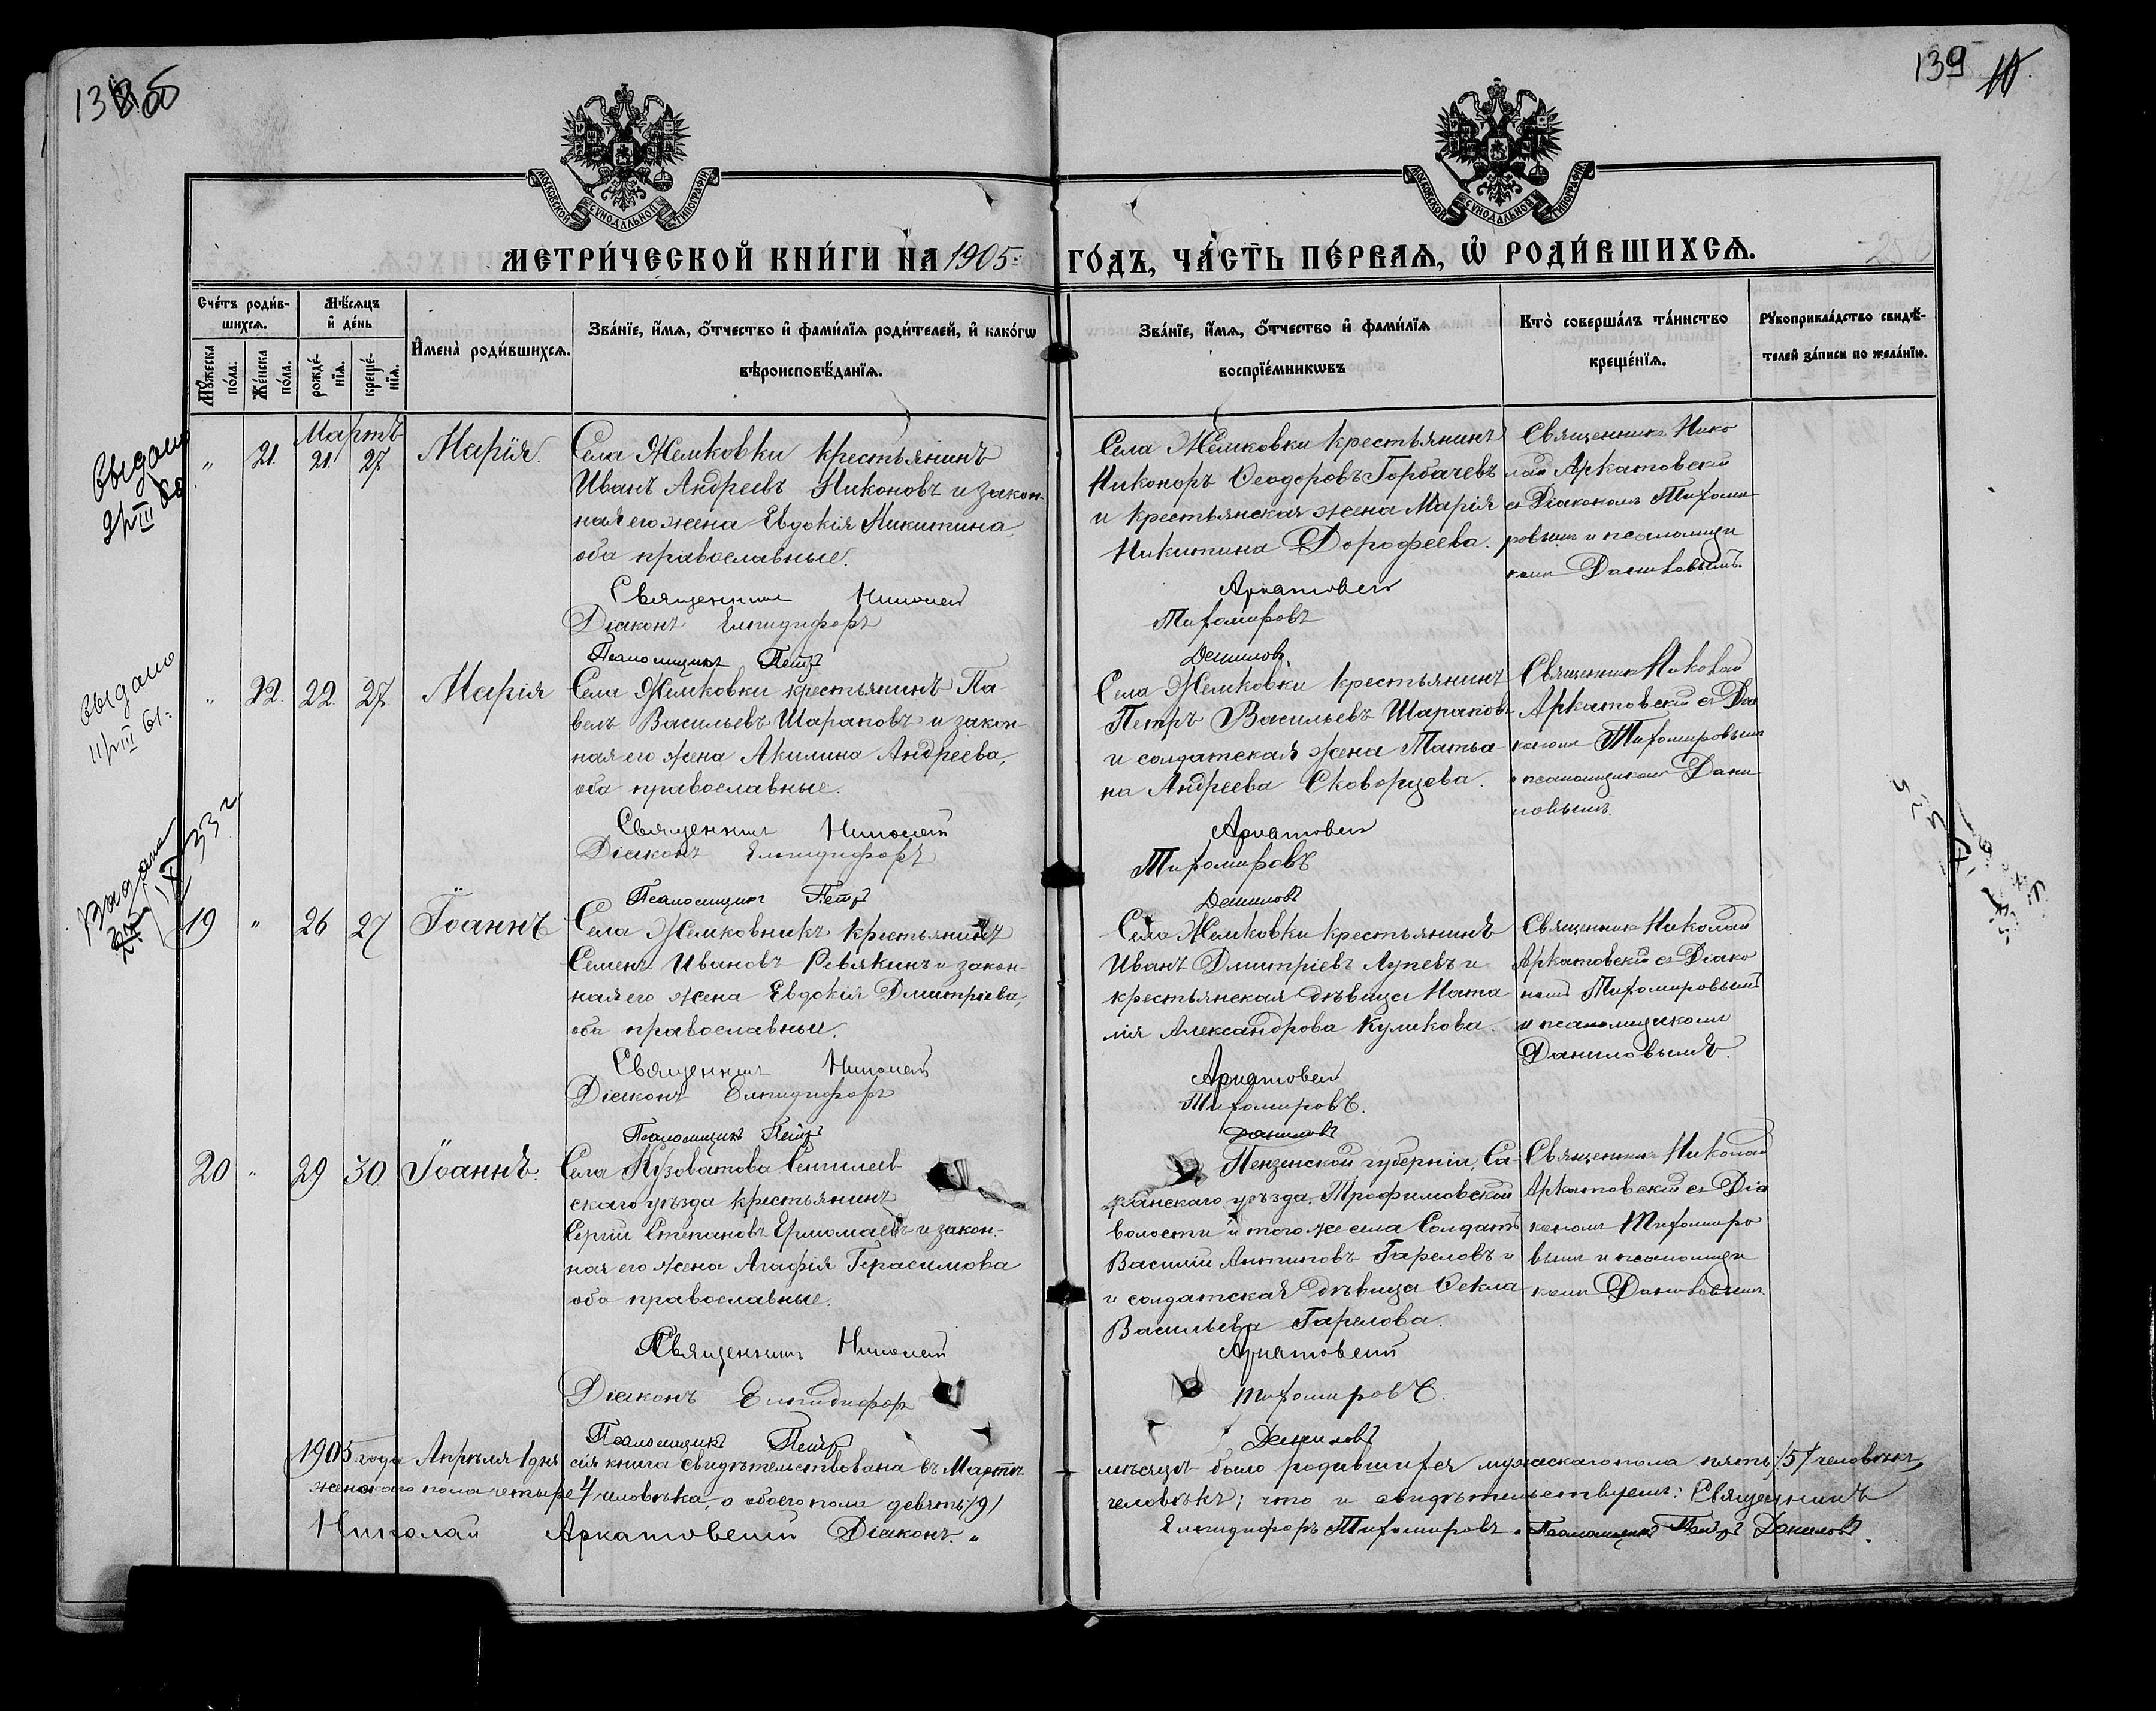 139
МОСКОВСКОЙ СѴНОДАЛЬНОЙ ТИПОГРАФІИ
МОСКОВСКОЙ СѴНОДАЛЬНОЙ ТИПОГРАФІИ
МЕТРИ́ЧЕСКОЙ КНИ́ГИ НА 1905 ГО́ДЪ, ЧА́СТЬ ПЕ́РВАѦ, Ѡ҆ РОДИ́ВШИХСѦ.
Сче́тъ роди́в-
шихсѧ.
Мѣ́сѧцъ
и҆ де́нь
Мꙋ́жеска
по́ла.
Же́нска
по́ла.
рожде́-
нїѧ.
креще́-
нїѧ.
И҆мена̀ роди́вшихсѧ.
Зва́нїе, и҆́мѧ, ѻ҆́тчество и҆ фамѝлїѧ роди́телей, и҆ како́гѡ
вѣроисповѣ́данїѧ.
Зва́нїе, и҆́мѧ, ѻ҆́тчество и҆ фамѝлїѧ
воспрїе́мникѡвъ
Кто̀ соверша́лъ та́инство
креще́нїѧ.
Рꙋкоприкла́дство свидѣ́-
телей за́писи по жела́нїю.
выдано
Мартъ
" 21. 21. 27 Марія.
Села Жемковки крестьянинъ
Иванъ Андреевъ Никоновъ и закон-
ная его жена Евдокія Никитина
оба православные.
Села Жемковки крестьянинъ
Никоноръ Ѳеодоровъ Горбачевъ
и крестьянская жена Марія
Никитина Дорофеева.
Священникъ Нико
лай Аркатовскій
съ Діакономъ Тихоми
ровымъ и псаломщи
комъ Даниловымъ.
Священникъ Николай Аркатовскій
Діаконъ Елпидифоръ Тихомировъ
Псаломщикъ Петръ Даниловъ
выдано
11/III 61.
" 22. 22. 27 Марія
Села Жемковки крестьянинъ Па-
велъ Васильевъ Шараповъ и закон-
ная его жена Акилина Андреева,
оба православные.
Села Жемковки крестьянинъ
Петръ Васильевъ Шараповъ
и солдатская жена Татья-
на Андреева Скворцева.
Священникъ Николай
Аркатовскій съ Діа
кономъ Тихомировымъ
и псаломщикомъ Дани
ловымъ.
Священникъ Николай Аркатовскій
Діаконъ Елпидифоръ Тихомировъ
Псаломщикъ Петръ Даниловъ
19 " 26 27 Іоаннъ
Села Жемковникъ крестьянинъ
Семенъ Ивановъ Ревякинъ и закон-
ная его жена Евдокія Дмитріева,
оба православны.
Села Жемковки крестьянинъ
Иванъ Дмитріевъ Лупевъ и
крестьянская дѣвица Ната
лія Александрова Куликова.
Священникъ Николай
Аркатовскій съ Діако
номъ Тихомировымъ
и псаломщикомъ
Даниловымъ.
Священникъ Николай Аркатовскій
Діаконъ Елпидифоръ Тихомировъ.
Псаломщикъ Петръ Даниловъ
20 " 29 30 Іоаннъ.
Села Кузоватова Сенгилеев
скаго уѣзда крестьянинъ
Сергій Степановъ Ермолаевъ и закон-
ная его жена Агафія Герасимова
оба православные.
Пензенской губерніи, Са-
ранскаго уѣзда, Трофимовской
волости и того же села Солдатъ
Василій Антиповъ Гареловъ и
и солдатская дѣвица Ѳекла
Васильева Гарелова.
Священникъ Николай
Аркатовскій съ Діа
кономъ Тихомиро
вымъ и псаломщи
комъ Даниловымъ.
Священникъ Николай Аркатовскій
Діаконъ Елпидифоръ Тихомировъ.
Псаломщикъ Петръ Даниловъ
1905 года Апрѣля 1 дня сія книга свидѣтельствована въ Мартѣ мѣсяцѣ было родившихся мужскаго пола пять /5/ человѣкъ,
женскаго пола четыре 4 человѣка, а обоего пола девять /9/ человѣкъ; что и свидѣтельствуемъ: Священникъ
Николай Аркатовскій Діаконъ " Елпидифоръ Тихомировъ. Псаломщикъ Петръ Даниловъ.